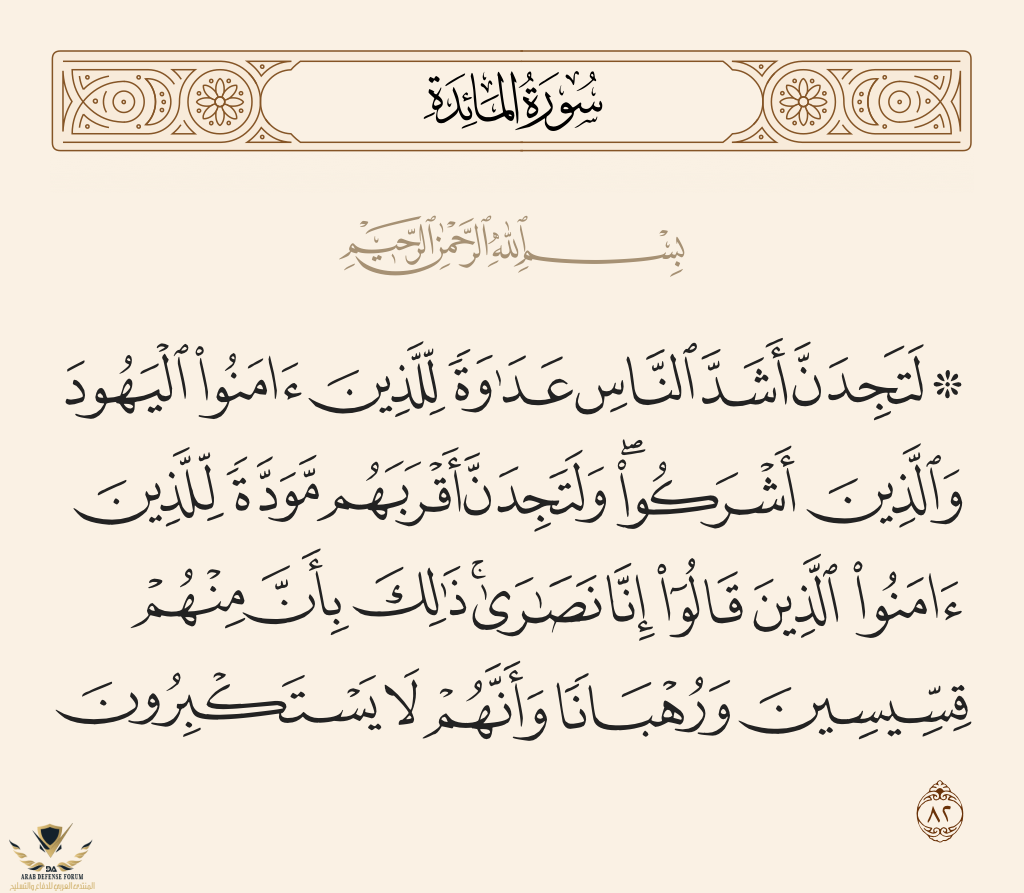 سُورَةُ المَائِدَةِ
بِسْمِ ٱللَّهِ ٱلرَّحْمَٰنِ ٱلرَّحِيمِ
۞ لَتَجِدَنَّ أَشَدَّ ٱلنَّاسِ عَدَٰوَةً لِّلَّذِينَ ءَامَنُوا۟ ٱلْيَهُودَ
وَٱلَّذِينَ أَشْرَكُوا۟ۖ وَلَتَجِدَنَّ أَقْرَبَهُم مَّوَدَّةً لِّلَّذِينَ
ءَامَنُوا۟ ٱلَّذِينَ قَالُوٓا۟ إِنَّا نَصَٰرَىٰۚ ذَٰلِكَ بِأَنَّ مِنْهُمْ
قِسِّيسِينَ وَرُهْبَانًا وَأَنَّهُمْ لَا يَسْتَكْبِرُونَ
٨٢
DA
ARAB DEFENSE FORUM
المنتدى العربي للدفاع والتسليح